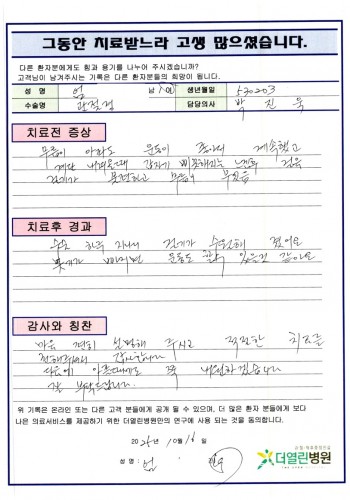 그동안 치료받느라 고생 많으셨습니다.
다른 환자분에게도 힘과 용기를 나누어 주시겠습니까?
고객님이 남겨주시는 기록은 다른 환자분들의 희망이 됩니다.
성 명 엄 남/여 생년월일 530203
수술명 관절경 담당의사 박진욱
치료전 증상
무릎이 아파도 운동이 좋아서 계속했고
계단 내려올때 갑자기 삐끗해지는 느낌과
걷기가 불편하고 무릎이 부었음
치료후 경과
수술 하루 지나서 걷기가 수월해 졌어요
붓기가 빠지면 운동도 할수 있을것 같아요
감사와 칭찬
마음 편히 설명해 주시고 적절한 치료를
해주셔서 감사합니다
다음에 아프더라도 또 내원하겠습니다
잘 부탁드립니다.
위 기록은 온라인 또는 다른 고객 분들에게 공개 될 수 있으며, 더 많은 환자 분들에게 보다
나은 의료서비스를 제공하기 위한 더열린병원만의 연구에 사용 되는 것을 동의합니다.
2025년 10월 16일
성 명 : 엄
더열린병원